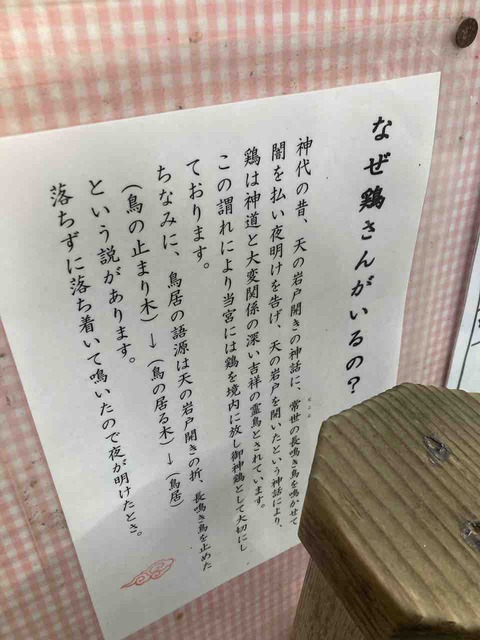 なぜ鶏さんがいるの？
神代の昔、天の岩戸開きの神話に、常世の長鳴き鳥を鳴かせて
闇を払い夜明けを告げ、天の岩戸を開いたという神話により、
鶏は神道と大変関係の深い吉祥の霊鳥とされています。
この謂れにより当宮には鶏を境内に放し御神鶏として大切にし
ております。
ちなみに、鳥居の語源は天の岩戸開きの折、長鳴き鳥を止めた
（鳥の止まり木）→（鳥の居る木）→（鳥居）
という説があります。
落ちずに落ち着いて鳴いたので夜が明けたとさ。